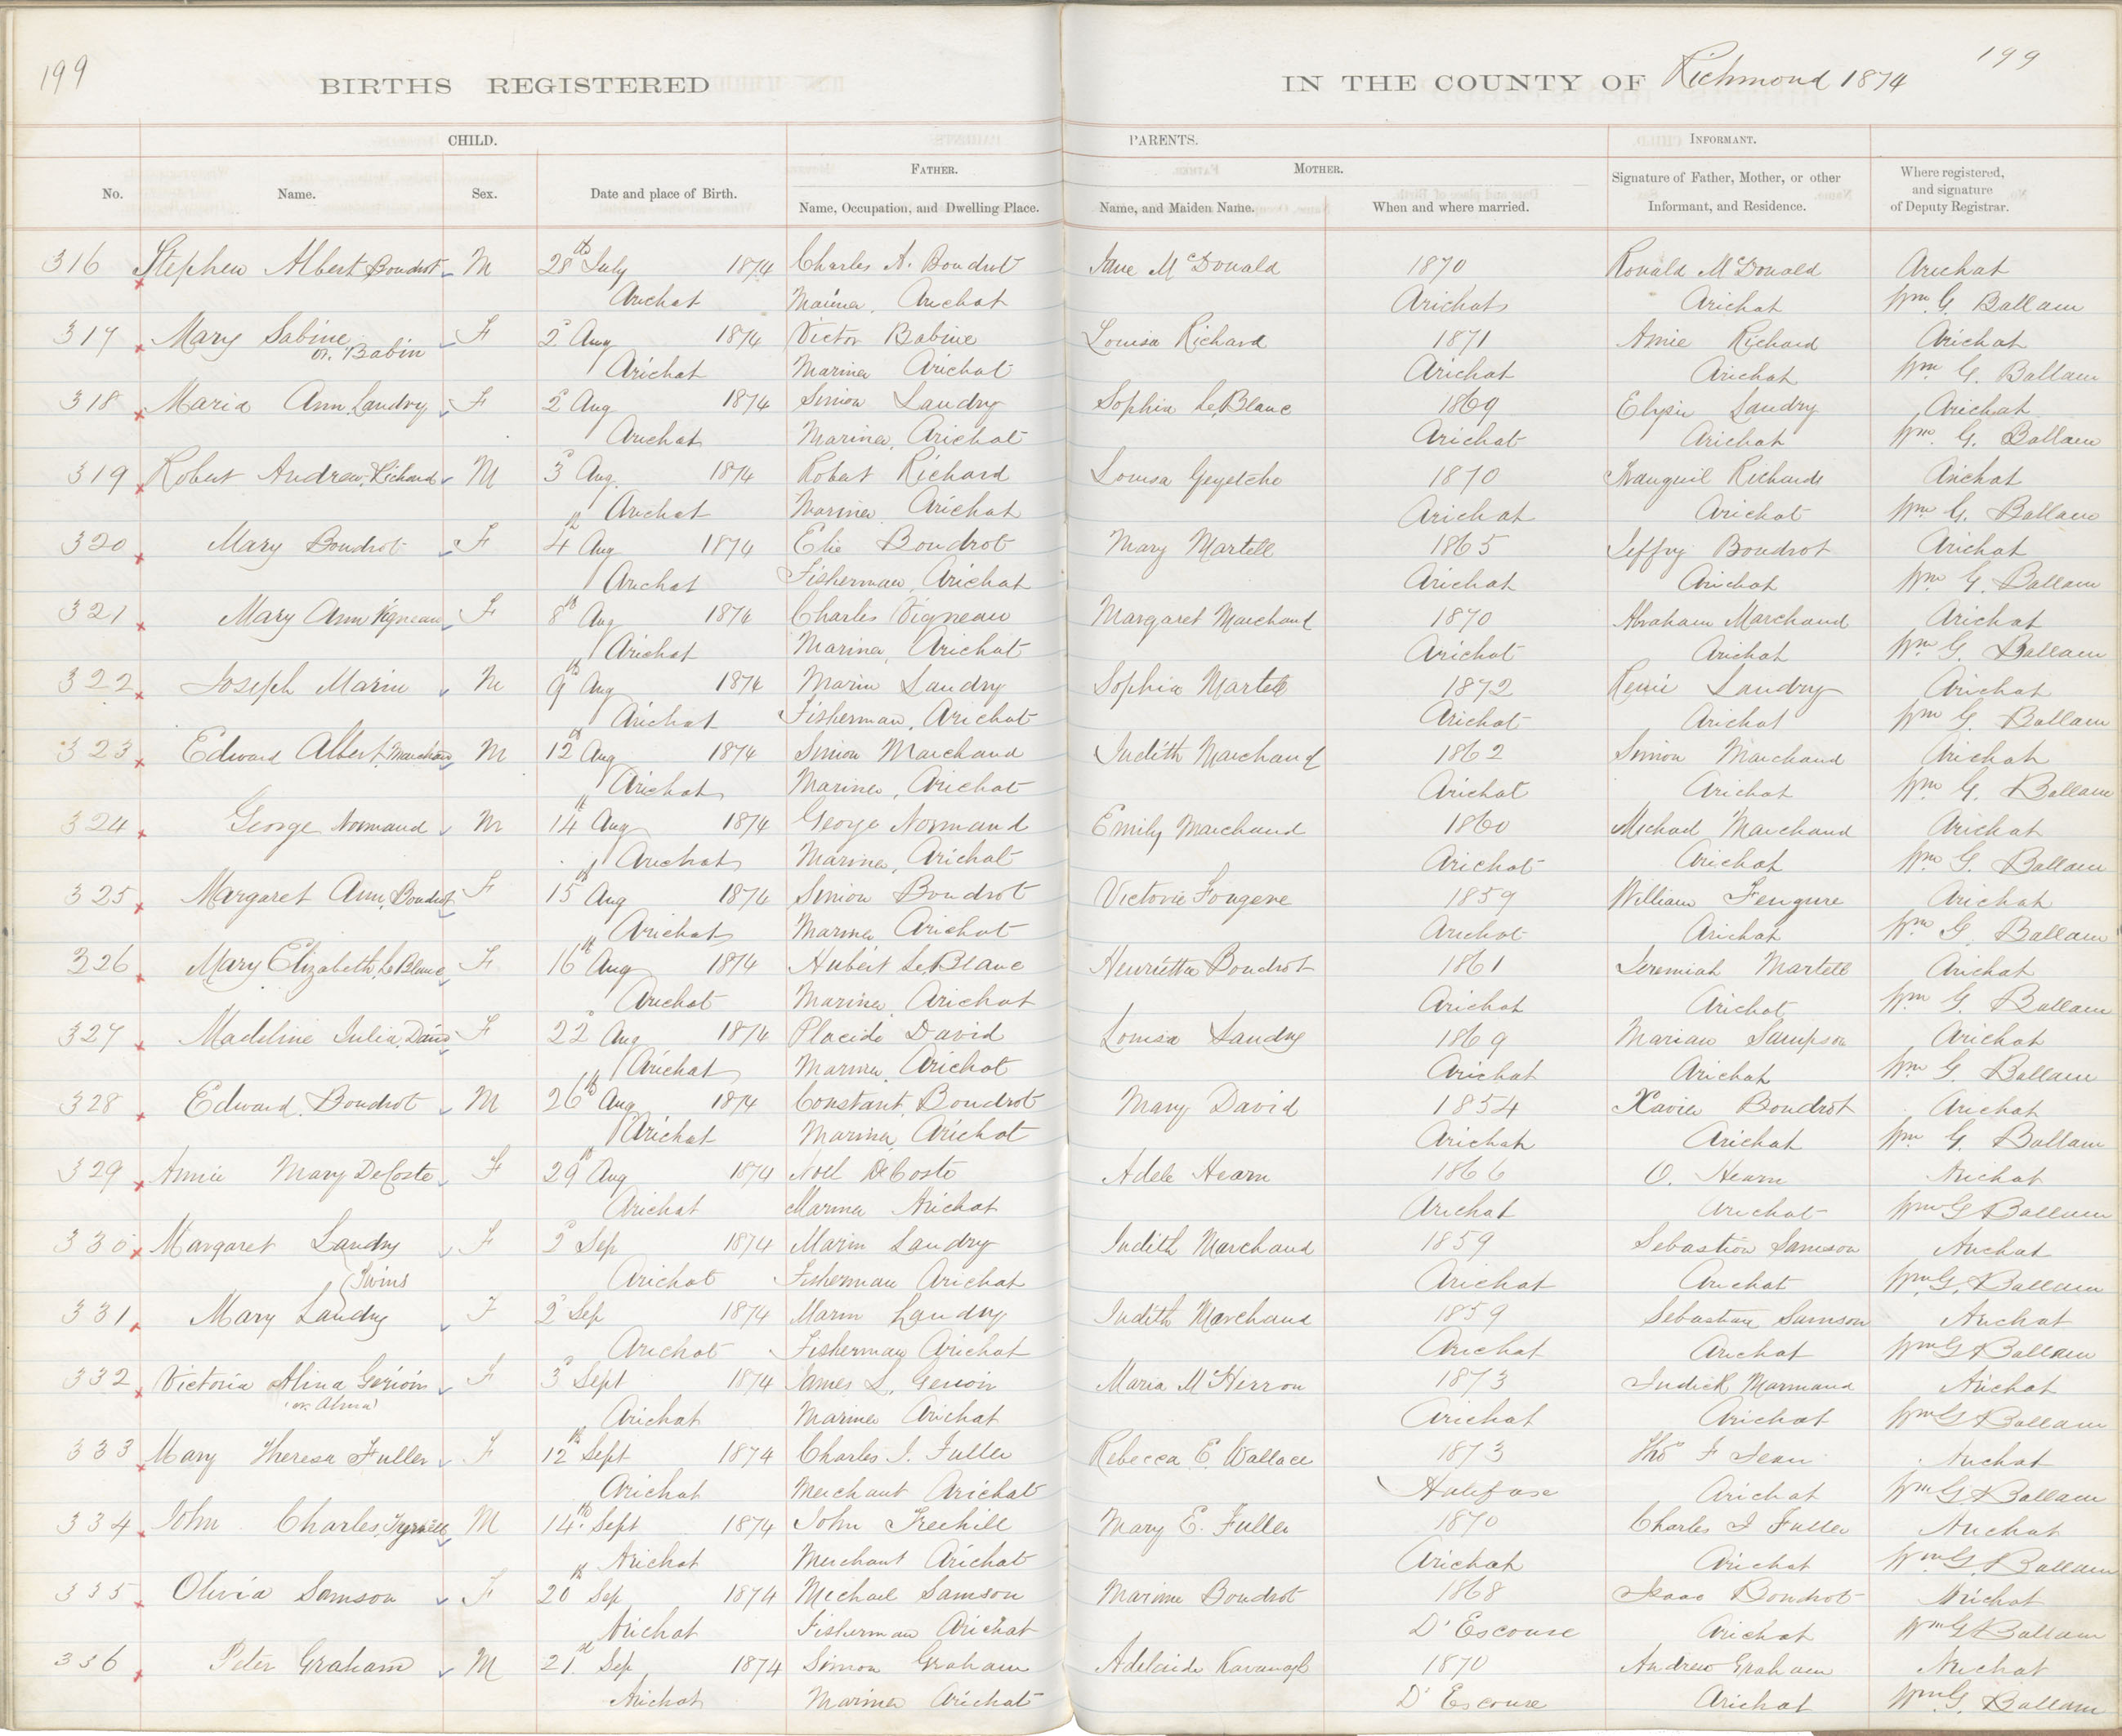 199
BIRTHS REGISTERED
IN THE COUNTY OF Richmond 1874
199
CHILD.
PARENTS.
INFORMANT.
FATHER.
MOTHER.
No.
Name.
Sex.
Date and place of Birth.
Name, Occupation, and Dwelling Place.
Name, and Maiden Name.
When and where married.
Signature of Father, Mother, or other
Informant, and Residence.
Where registered,
and signature
of Deputy Registrar.
316 Stephen Albert Boudrot M 28th July 1874 Charles A. Boudrot Jane McDonald 1870 Ronald McDonald Arichat
Arichat Mariner, Arichat Arichat Arichat Wm G. Ballam
317 Mary Sabine F 2d Aug 1874 Victor Babine Louisa Richard 1871 Amie Richard Arichat
or Babin
Arichat Mariner Arichat Arichat Arichat Wm G. Ballam
318 Maria Ann Landry F 2d Aug 1874 Simon Landry Sophia LeBlanc 1869 Landry Arichat
Arichat Mariner, Arichat Arichat Arichat Wm. G. Ballam
319 Robert Andrew Richard M 3d Aug. 1874 Robert Richard Louisa 1870 Richards Arichat
Arichat Mariner, Arichat Arichat Arichat Wm G. Ballam
320 Mary Boudrot F 4th Aug 1874 Elie Boudrot Mary Martell 1865 Jeffry Boudrot Arichat
Arichat Fisherman, Arichat Arichat Arichat Wm G. Ballam
321 Mary Ann Vigneau F 8th Aug 1874 Charles Vigneau Margaret Marchand 1870 Abraham Marchand Arichat
Arichat Mariner, Arichat Arichat Arichat Wm G. Ballam
322 Joseph Marin M 9th Aug 1874 Marin Landry Sophia Martell 1872 Remi Landry Arichat
Arichat Fisherman, Arichat Arichat Arichat Wm G. Ballam
323 Edward Albert Marchand M 12th Aug 1874 Simon Marchand Judith Marchand 1862 Simon Marchand Arichat
Arichat Mariner, Arichat Arichat Arichat Wm G. Ballam
324 George Normand M 14th Aug 1874 George Normand Emily Marchand 1860 Michael Marchand Arichat
Arichat Mariner, Arichat Arichat Arichat Wm. G. Ballam
325 Margaret Ann, Boudrot F 15th Aug 1874 Simion Boudrot Victorie Fongere 1859 William Arichat
Arichat Mariner Arichat Arichat Arichat Wm G. Ballam
326 Mary Elizabeth, LeBlanc F 16th Aug 1874 Hubert LeBlanc Henrietta Boudrot 1861 Jeremiah Martell Arichat
Arichat Mariner Arichat Arichat Arichat Wm G. Ballam
327 Madeline Julia David F 22d Aug 1874 Placide David Louisa Landry 1869 Marian Sampson Arichat
Arichat Mariner, Arichat Arichat Arichat Wm G. Ballam
328 Edward, Boudrot M 26th Aug 1874 Constant Boudrot Mary David 1854 Xavier Boudrot Arichat
Arichat Mariner, Arichat Arichat Arichat Wm G. Ballam
329 Annie Mary DeCoste F 29th Aug 1874 Noel DeCoste Adele Hearn 1866 O. Hearn Arichat
Arichat Mariner Arichat Arichat Arichat Wm G Ballam
330 Margaret Landry F 2d Sep 1874 Marin Landry Judith Marchand 1859 Sebastion Samson Arichat
Twins Arichat Fisherman Arichat Arichat Arichat Wm G. Ballam
331 Mary Landry F 2d Sep 1874 Marin Landry Judith Marchand 1859 Sebastian Samson Arichat
Arichat Fisherman Arichat Arichat Arichat Wm G Ballam
332 Victoria Alina Gerioir F 3d Sept 1874 James L. Gerroir Maria McHerron 1873 Marmaud Arichat
(or Alma)
Arichat Mariner Arichat Arichat Arichat Wm G Ballam
333 Mary Theresa Fuller F 12th Sept 1874 Charles J. Fuller Rebecca E. Wallace 1873 Thos F Jean Arichat
Arichat Merchant Arichat Halifax Arichat Wm G Ballam
334 John Charles, M 14th Sept 1874 John Mary E. Fuller 1870 Charles J Fuller Arichat
Arichat Merchant Arichat Arichat Arichat Wm G. Ballam
335 Olivia Samson F 20th Sep 1874 Michael Samson Marine Boudrot 1868 Isaac Boudrot Arichat
Arichat Fisherman Arichat D'Escouse Arichat Wm G Ballam
336 Peter Graham M 21st Sep 1874 Simon Graham Adelaide Kavanagh 1870 Andrew Graham Arichat
Arichat Mariner Arichat D'Escouse Arichat Wm G. Ballam